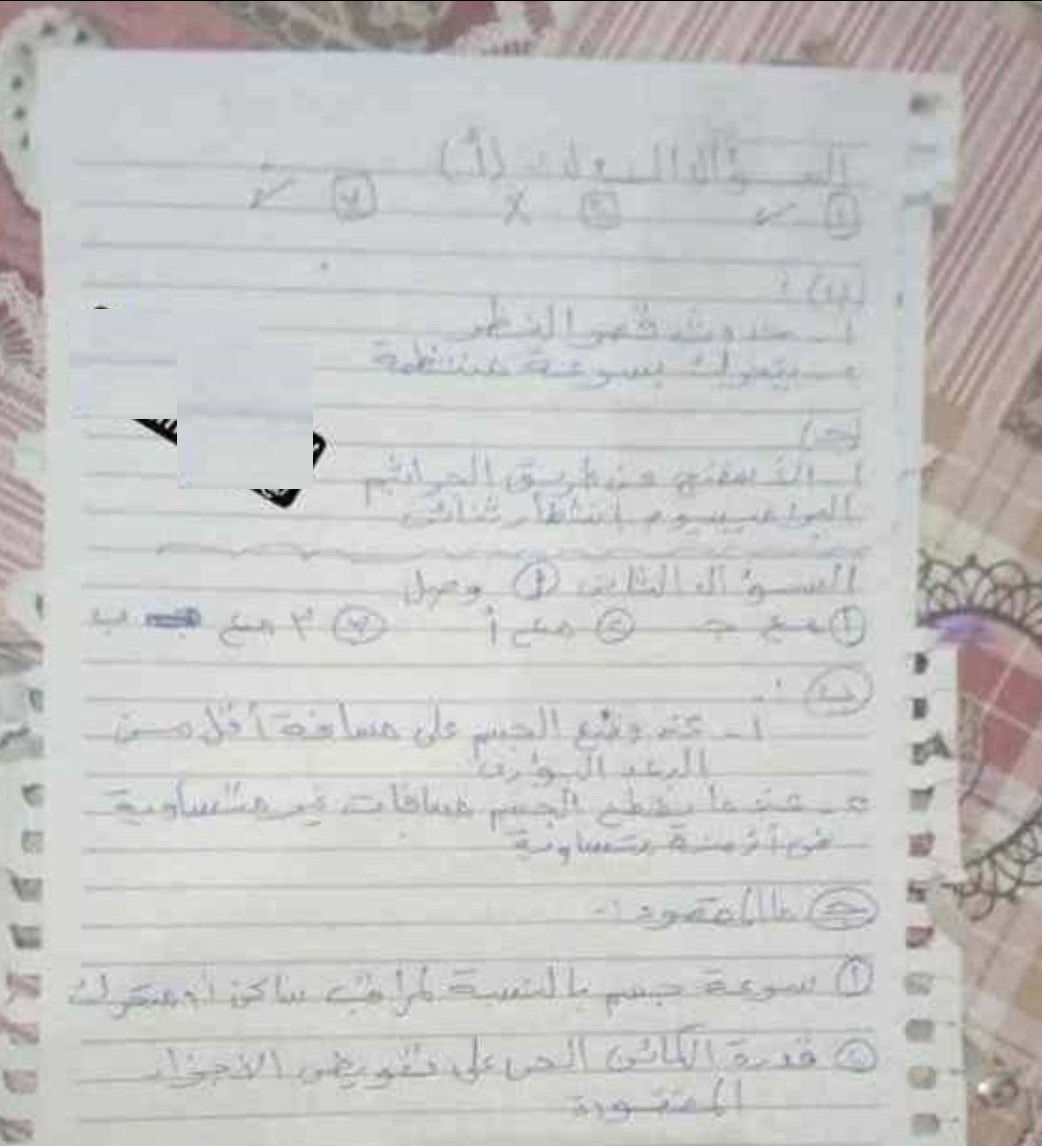 السؤال الاول :- (أ)
١ ✓ ٢ X ٣ ✓
(ب) :
١ - حدوث قصر النظر
٢ - يتحرك بسرعة منتظمة
(جـ)
١ - التـ عن طريق الجراثيم
البراميسيوم انشطار ثنائى
السؤال الثانى أ وصل
١ مع جـ ٢ مع أ ٣ ٣ مع ب
ب :-
أ - عند وضع الجسم على مسافة أقل من
البعد البؤرى
٢ - عندما يقطع الجسم مسافات غير متساوية
فى أزمنة متساوية
جـ ما المقصود :-
١ سرعة جسم بالنسبة لمراقب ساكن أو متحرك
٢ قدرة الكائن الحى على تعويض الاجزاء
المفقودة